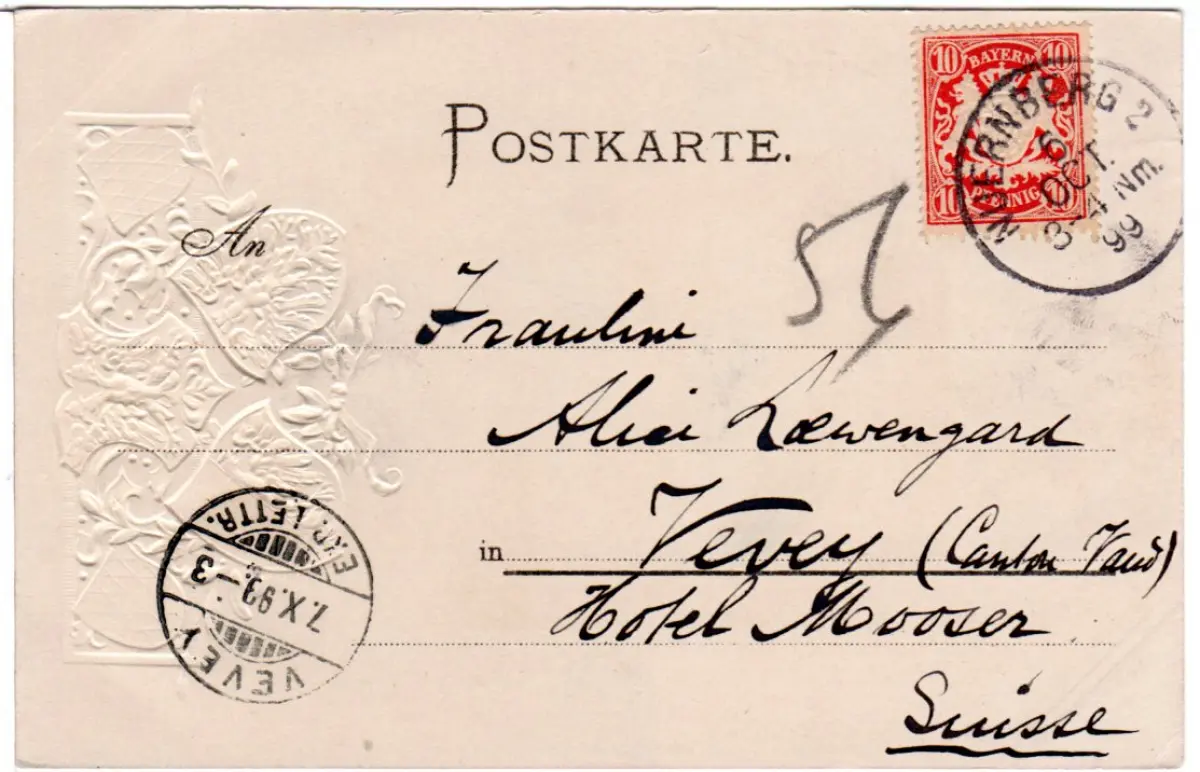 POSTKARTE.
10 BAYERN 10
10 PFENNIG 10
NUERNBERG 2
6
OCT.
3-4 Nm.
99
51
An
Fräulein
Alice Loewengard
in Vevey (Canton Vaud)
Hotel Mooser
Suisse
EXP. LETTR.
7.X.99.-3
VEVEY